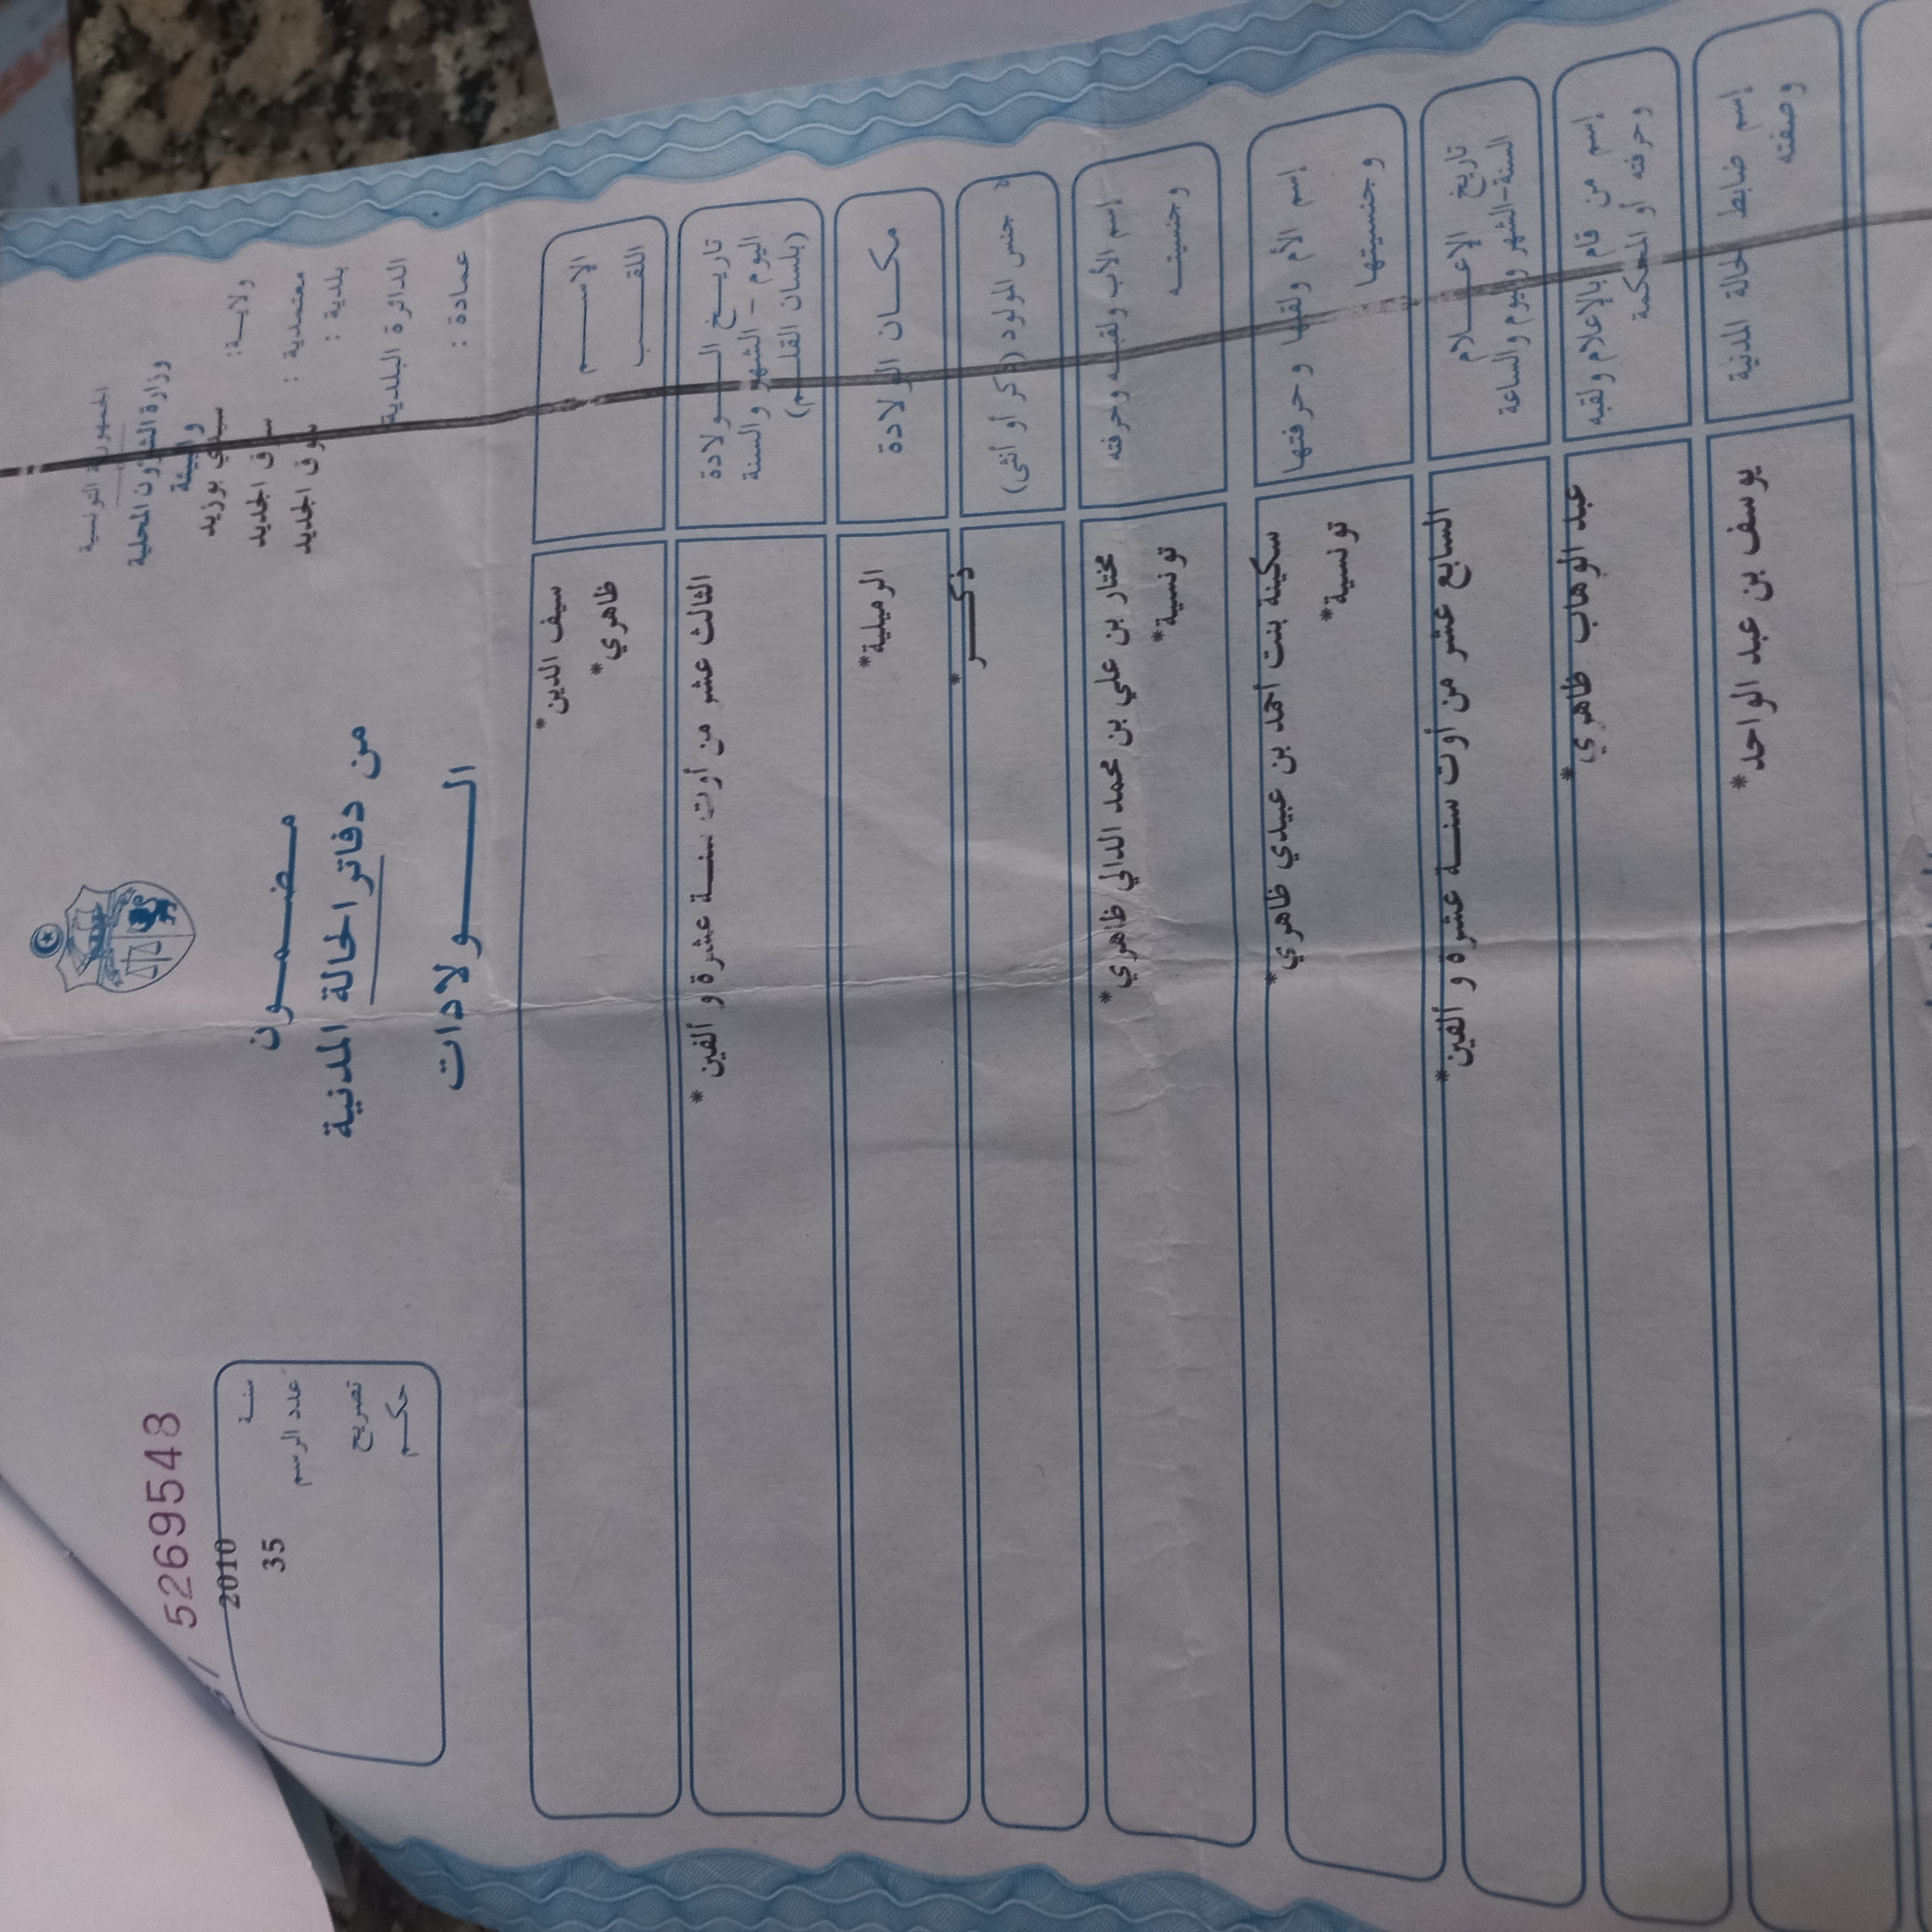 الجمهورية التونسية
وزارة الشؤون المحلية
و البيئة
ولايـــة: سيدي بوزيد
معتمدية : سوق الجديد
بلدية : سوق الجديد
الدائرة البلدية
عمادة :
مـضـمـــون
من دفاتر الحالة المدنية
الــــــولادات
5269548
سنــة 2010
عدد الرسم 35
تصريح
حكــم
الإســــــم سيف الدين*
اللقــــــب ظاهري*
تاريــــخ الــــولادة
اليوم - الشهر و السنة
(بلسان القلــم)
الثالث عشر من أوت سنــة عشرة و ألفين *
مكـــان الولادة الرميلية*
جنس المولود (ذكر أو أنثى) ذكـــر *
إسم الأب ولقبــه وحرفته مختار بن علي بن محمد الدالي ظاهري*
وجنسيتــه تونسية*
إسم الأم ولقبها وحرفتها سكينة بنت أحمد بن عبيدي ظاهري*
و جنسيتها تونسية*
تاريخ الإعــــلام
السنة-الشهر واليوم والساعة
السابع عشر من أوت سنــة عشرة و ألفين*
إسم من قام بالإعلام ولقبه عبد الوهاب ظاهري*
وحرفته أو المحكمة
إسم ضابط الحالة المدنية يوسف بن عبد الواحد*
وصفته